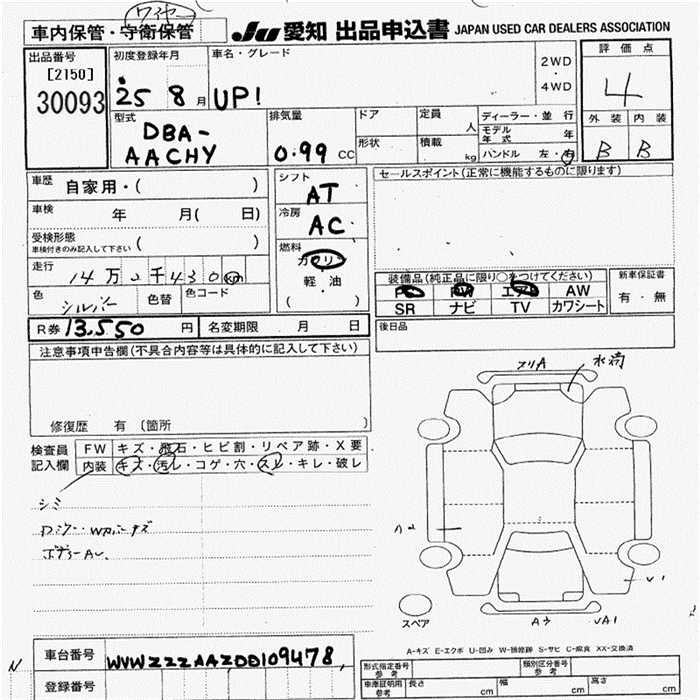 ワイヤー
車内保管・守衛保管
JU 愛知 出品申込書 JAPAN USED CAR DEALERS ASSOCIATION
出品番号
[2150]
30093
初度登録年月
25 8 月
車名・グレード
UP!
2WD
・
4WD
評価点
4
外装 内装
B B
型式
DBA-
AACHY
排気量
0.99 CC
ドア
形状
定員
人
積載
kg
ディーラー・並行
モデル年式 年
ハンドル 左・右
車歴 自家用・( )
車検 年 月( 日)
受検形態
車検付きのみ記入して下さい ( )
走行 14万 2千430 km
色 シルバー 色替 色コード
シフト
AT
冷房
AC
燃料
ガソリン
軽油
( )
セールスポイント(正常に機能するものに限ります)
装備品(純正品に限り○をつけてください)
PS PW エアB AW
SR ナビ TV カワシート
新車保証書
有・無
R券 13,550 円 名変期限 月 日
後日品
注意事項申告欄(不具合内容等は具体的に記入して下さい)
修復歴 有 〔箇所 〕
検査員
記入欄
FW キズ・飛石・ヒビ割・リペア跡・X要
内装 キズ・汚レ・コゲ・穴・スレ・キレ・破レ
シミ
ボデーAU
スリA
A2
U1
Aウ UA1
スペア
A-キズ E-エクボ U-凹み W-補修跡 S-サビ C-腐食 XX-交換済
N
車台番号 WVWZZZAAZDD109478
登録番号
形式指定番号
参考
類別区分番号
参考
車庫証明用
参考
長さ cm 幅 cm 高さ cm